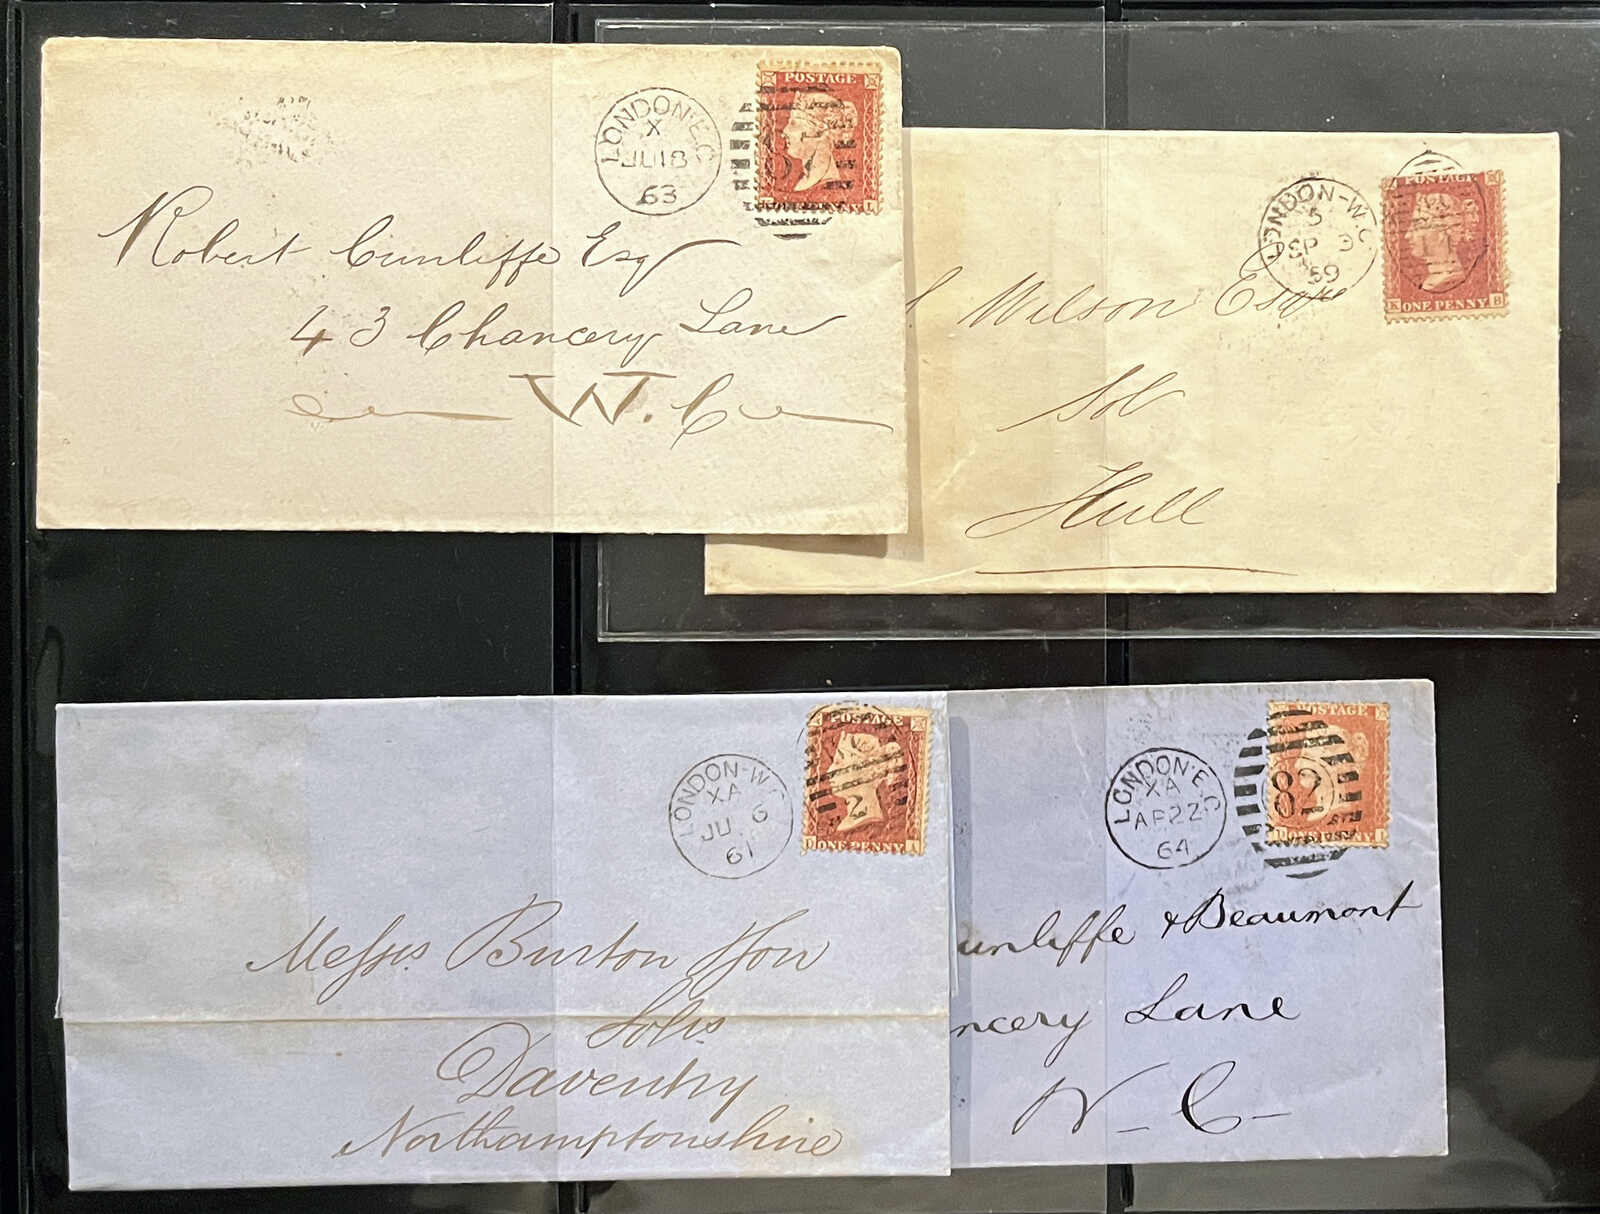 LONDON·E.C
X
JU 18
63
POSTAGE
Robert Cunliffe Esq
43 Chancery Lane
W.C
LONDON-W.C
5
SP 9
59
POSTAGE
K ONE PENNY B
Wilson Esqre
Sol
Hull
LONDON-W.C
XA
JU 6
61
POSTAGE
2
D ONE PENNY A
Messrs Burton & Son
Solrs
Daventry
Northamptonshire
LONDON·E.C
XA
AP 22
64
POSTAGE
82
unliffe & Beaumont
ncery Lane
W-C-